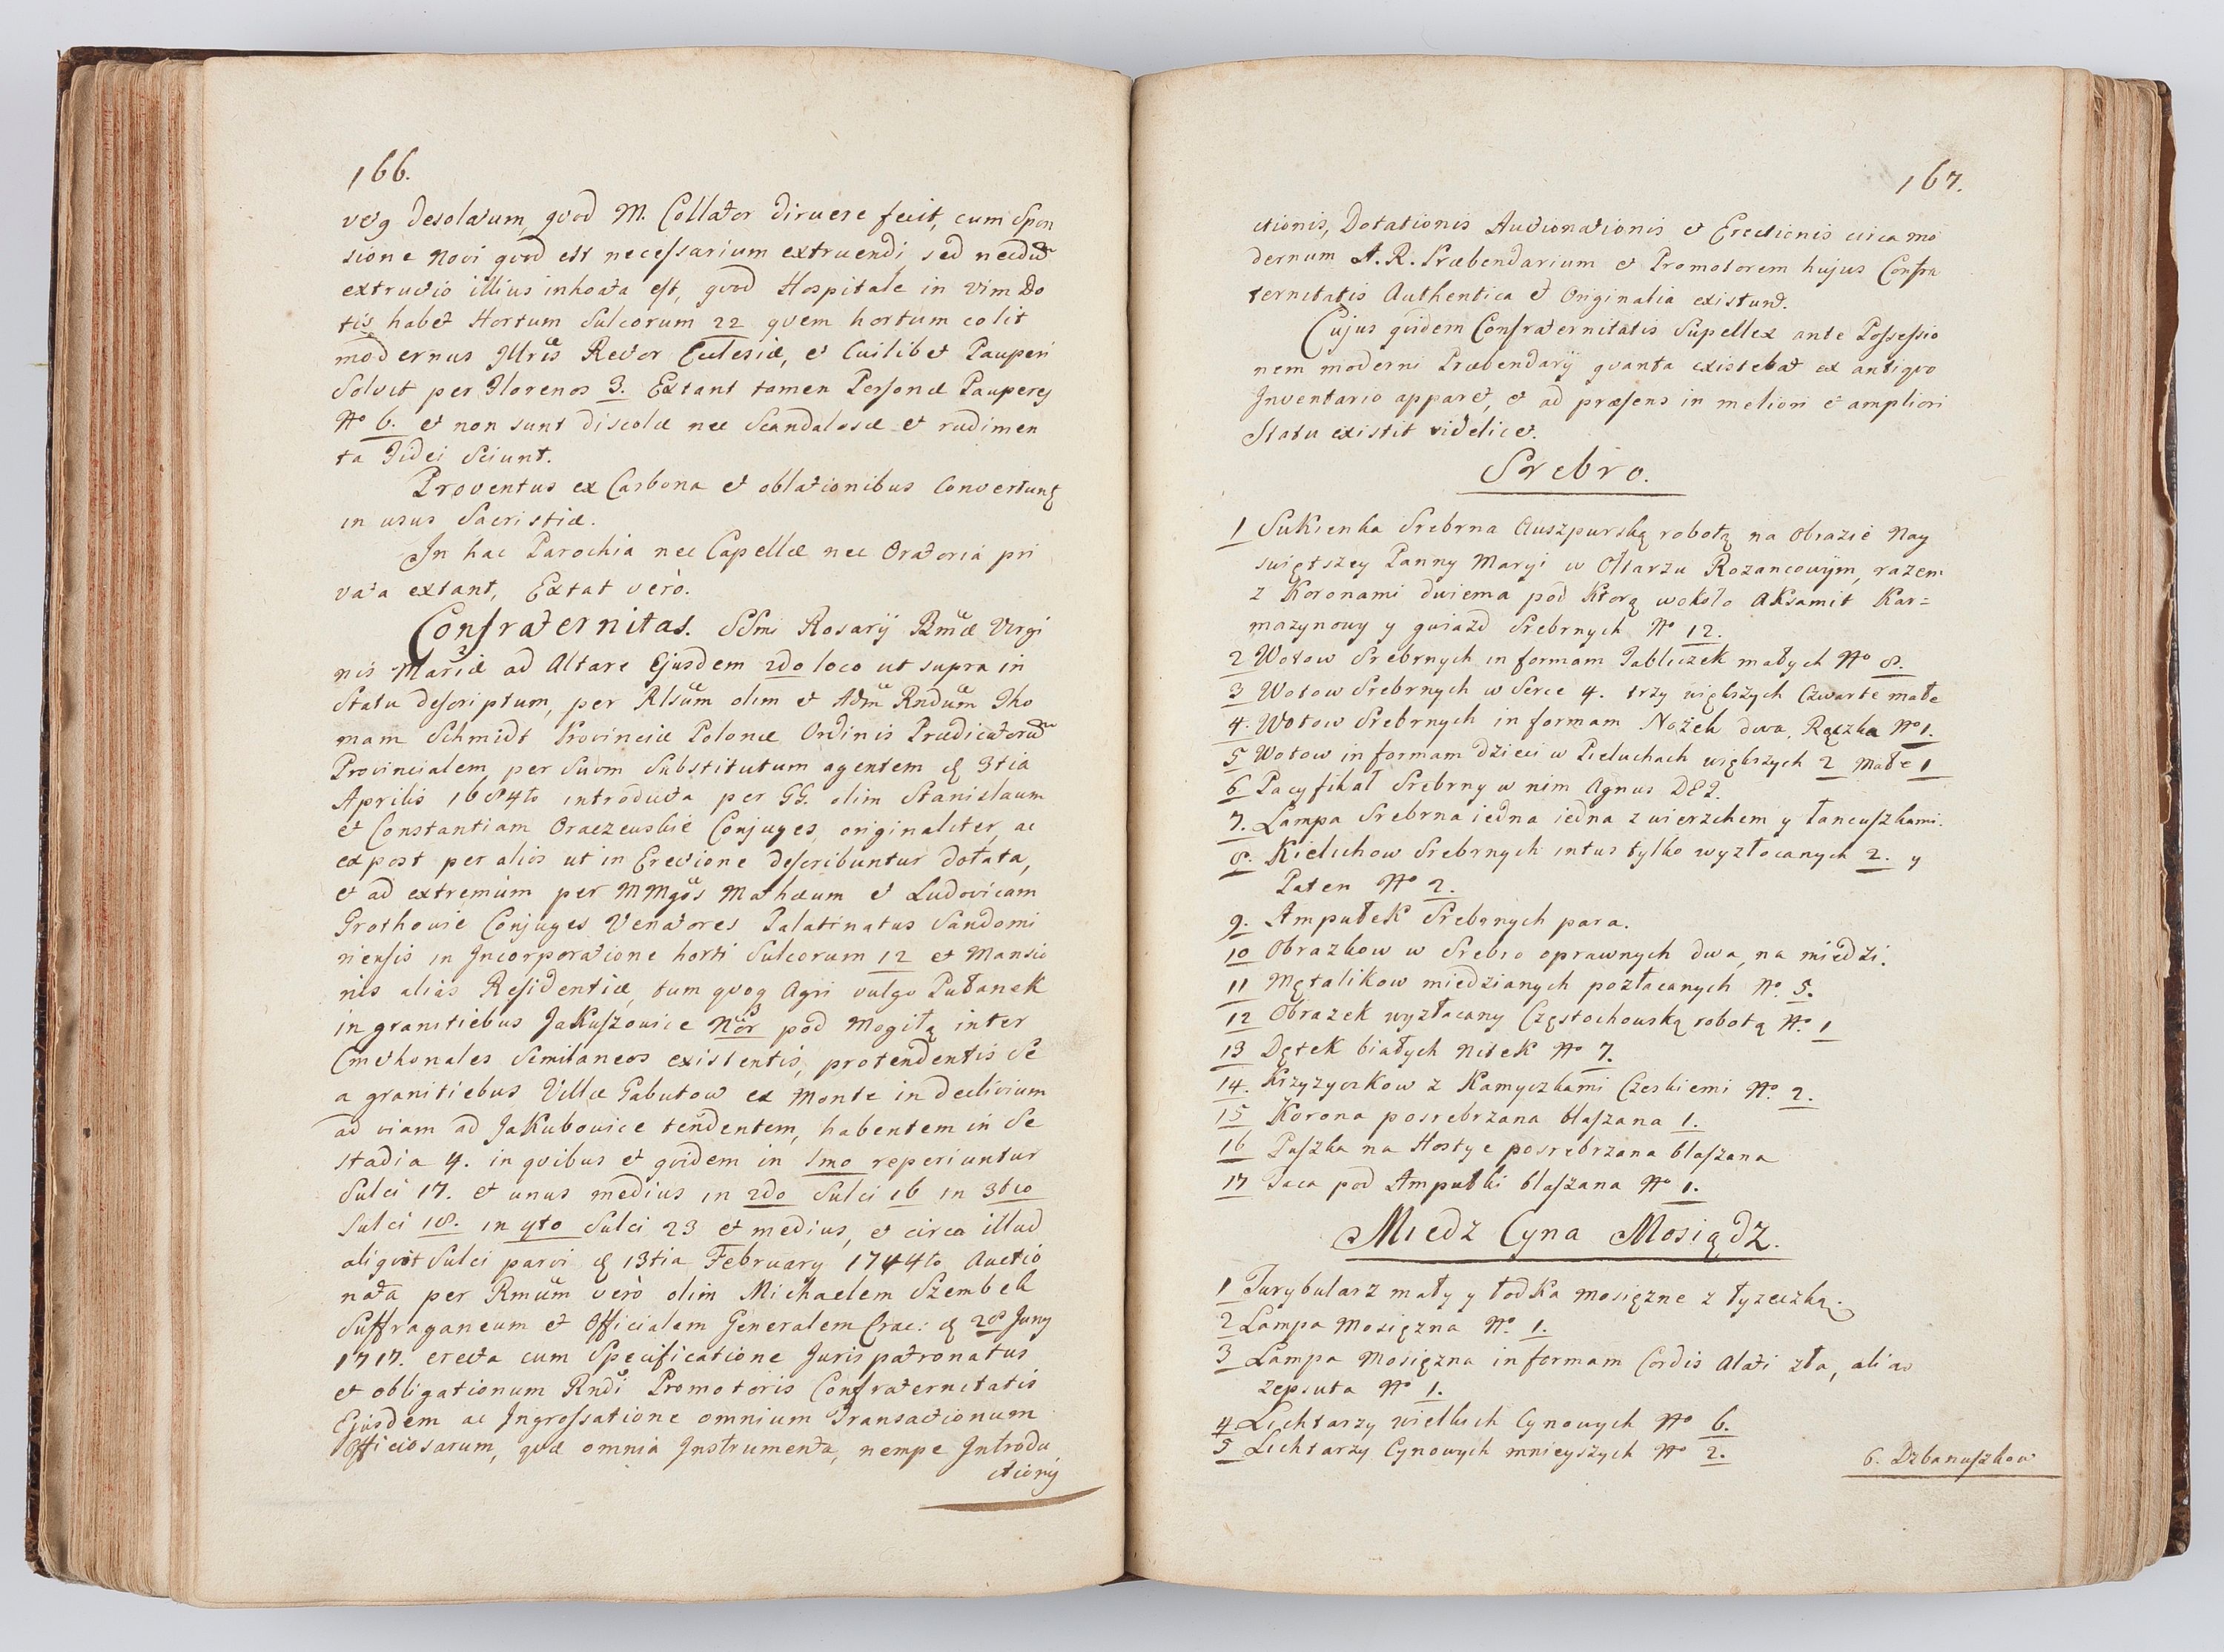 166.
veg desolatum, quod M. Collator diruere fecit, cum Spon
sione novi quod est necessarium extruendi sed necdu
extructio illius inhoata est, quod Hospitale in vim Do
tis habet Hortum Sulcorum 22 quem hortum colit
modernus Illris Rector Ecclesiæ, et Cuilibet Pauperi
Solvit per Florenos 3. Extant tamen Personæ Pauperes
No 6. et non sunt discolæ nec Scandalosæ et rudimen
ta Fidei Sciunt.
Proventus ex Carbona et oblationibus Convertung
in usus Sacristiæ.
In hac Parochia nec Capellæ nec Oratoria pri
vata extant, Extat verò.
Confraternitas. SSmi Rosarij Bmæ Virgi
nis Mariæ ad Altare Ejusdem 2do loco ut supra in
Statu descriptum, per Rlsum olim et Adm Rndum Tho
mam Schmidt Provinciæ Polonæ Ordinis Prædicatoru
Provincialem, per Suum Substitutum agentem d 3tia
Aprilis 1684to introducta per GG. olim Stanislaum
et Constantiam Oraczewskie Conjuges, originaliter, ac
ex post per alios ut in Erectione describuntur dotata,
et ad extremum per MMgos Mathæum et Ludovicam
Grothowie Conjuges Venatores Palatinatus Sandomi
riensis in Incorporatione horti Sulcorum 12 et Mansio
nis alias Residentiæ, tum quoq Agri vulgo Pułanek
in granitiebus Jakuszowice Nor pod Mogiłą inter
Cmethonales Semilaneos existentis, protendentis Se
a granitiebus Villæ Gabutow ex Monte in declivium
ad viam ad Jakubowice tendentem, habentem in Se
stadia 4. in quibus et quidem in 1mo reperiuntur
Sulci 17. et unus medius in 2do Sulci 16 in 3tio
Sulci 18. in 4to Sulci 23 et medius, et circa illud
aliquot Sulci parvi d 13tia February 1744to Auctio
nata per Rmum verò olim Michaelem Szembek
Suffraganeum et Officialem Generalem Crac: d 28 Juny
1717. erecta cum Specificatione Juris patronatus
et obligationum Rndi Promotoris Confraternitatis
Ejusdem ac Ingrossatione omnium Transactionum
Officiosarum, quæ omnia Instrumenta, nempe Introdu
ctionis
167.
ctionis, Dotationis Auctionationis et Erectionis circa mo
dernum A. R. Præbendarium et Promotorem hujus Confra
ternitatis Authentica et Originalia existunt.
Cujus quidem Confraternitatis Supellex ante Possessio
nem moderni Præbendarij quanta existebat ex antiquo
Inventario apparet, et ad præsens in meliori et ampliori
Statu existit videlicet.
Srebro.
1 Sukienka Srebrna Auszpurską robotą na Obrazie Nay
swiętszey Panny Maryi w Ołtarzu Rozancowym, razem
z Koronami dwiema pod Ktorą wokoło Aksamit Kar=
mazynowy y gwiazd Srebrnych No 12.
2 Wotow Srebrnych in formam Tabliczek małych No 8.
3 Wotow Srebrnych w Serce 4. trzy większych Czwarte małe
4. Wotow Srebrnych in formam Nożek dwa, Rączka No 1.
5 Wotow in formam dzieci w Pieluchach większych 2 Małe 1
6 Pacyfikał Srebrny w nim Agnus DEI.
7. Lampa Srebrna iedna iedna z wierzchem y łancuszkami.
8. Kielichow Srebrnych intus tylko wyzłocanych 2. y
Paten No 2.
9. Ampułek Srebrnych para.
10 Obrazkow w Srebro oprawnych dwa, na miedzi.
11 Mętalikow miedzianych pozłacanych No. 5.
12 Obrazek wyzłacany Częstochowską robotą No. 1
13 Dętek białych Nitek No 7.
14. Krzyzyczkow z Kamyczkami Czeskiemi No. 2.
15 Korona posrebrzana blaszana 1.
16 Puszka na Hostye posrebrzana blaszana
17 Taca pod Ampułki blaszana No 1.
Miedz Cyna Mosiądz.
1 Turybularz mały y łodka mosięzne z łyzeczką.
2 Lampa Mosięzna No. 1.
3 Lampa Mosięzna in formam Cordis Alati zła, alias
zepsuta No 1.
4 Lichtarzy wielkich Cynowych No 6.
5 Lichtarzy Cynowych mnieyszych No 2.
6. Dzbanuszkow